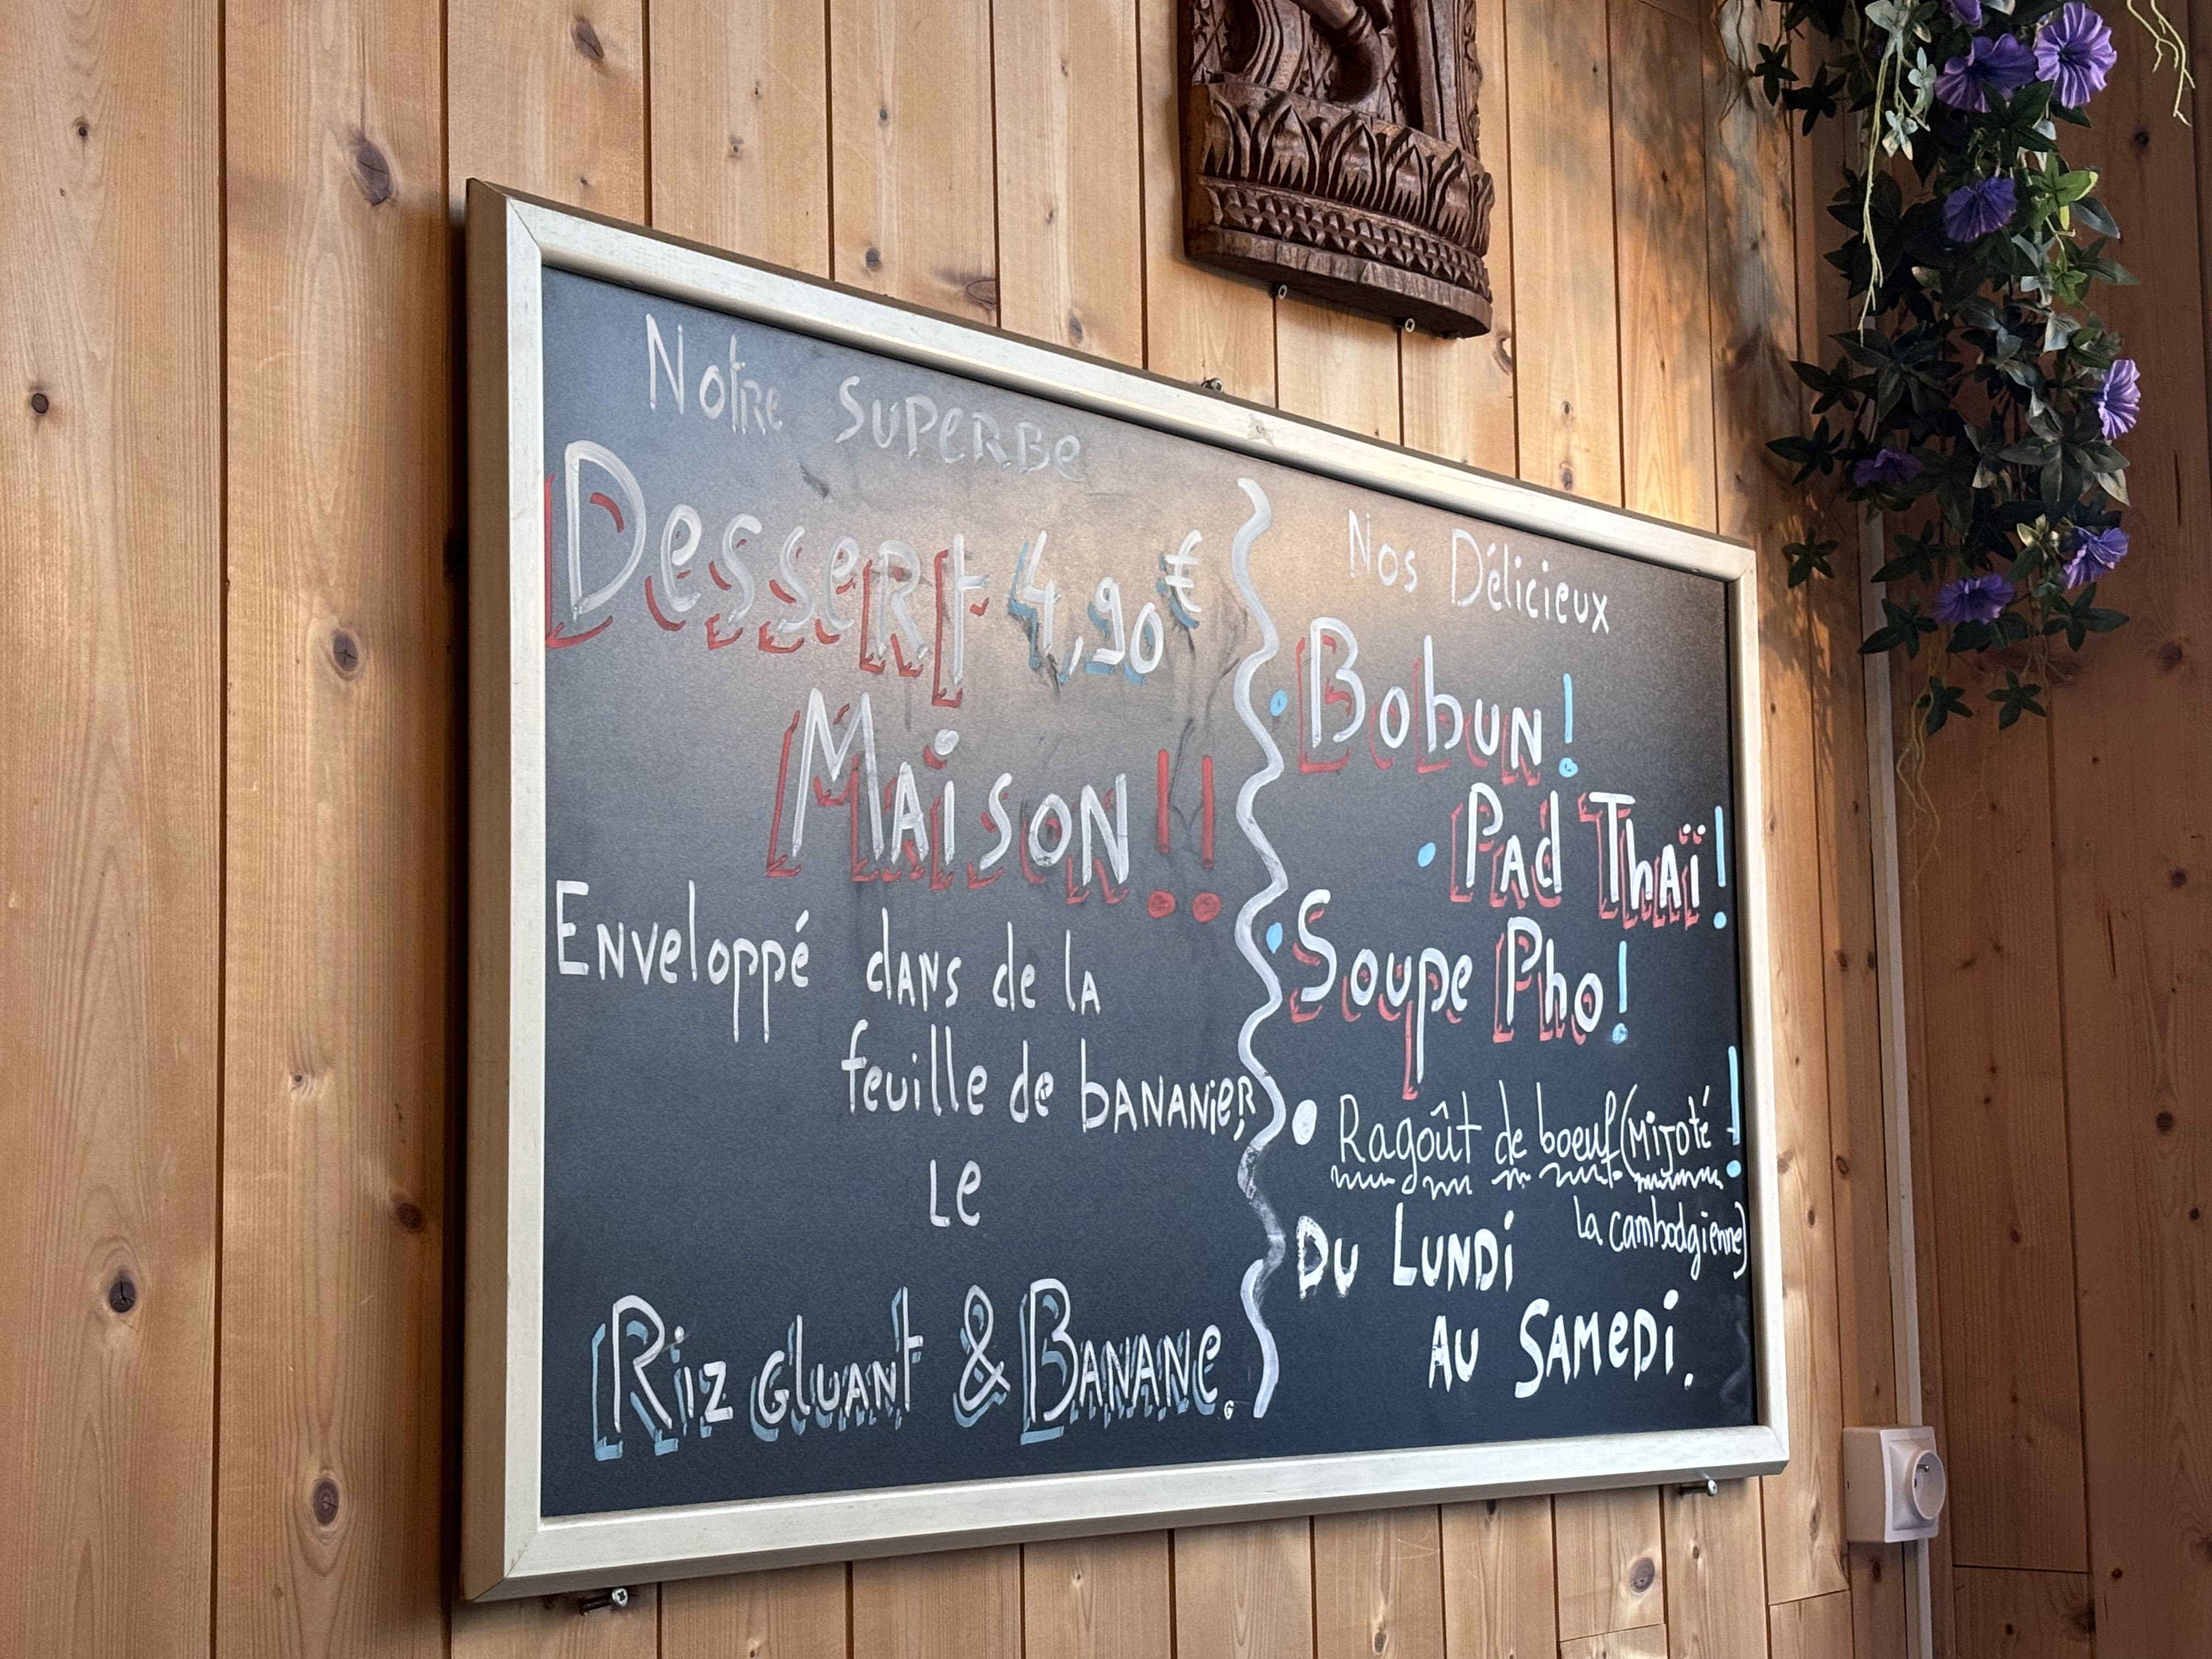 Notre SUPERBE
DesseRt 4,90€
MAiSON !!
ENveloppé dANS de lA
feuille de bANANieR,
Le
Riz gluANt & BANANe.
Nos Délicieux
• BobuN !
• PAd ThAï !
• Soupe Pho !
• Ragoût de boeuf (Mijoté !
la cambodgienne)
Du LUNDi
AU SAMeDi.